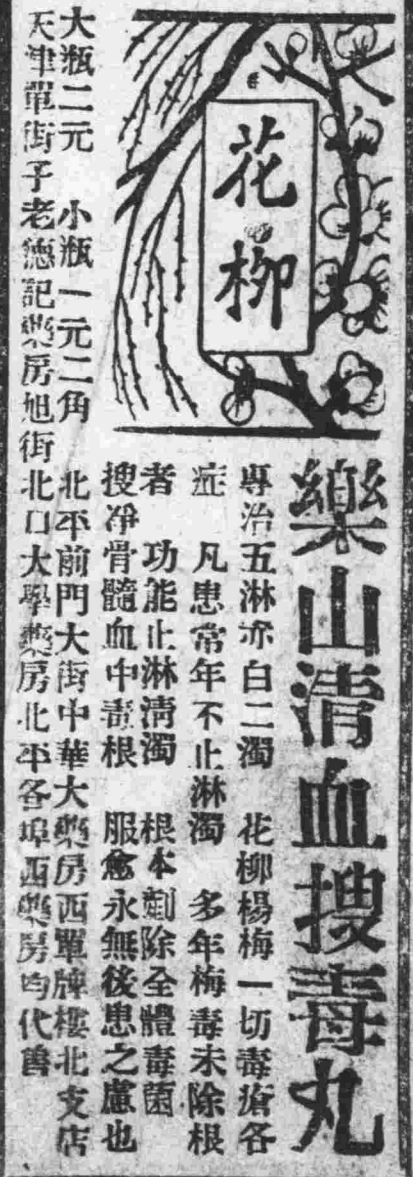 花柳
樂山清血搜毒丸
專治五淋赤白二濁　花柳楊梅一切毒瘡各
症　凡患常年不止淋濁　多年梅毒未除根
者　功能止淋清濁　根本剷除全體毒菌
搜凈骨髓血中毒根　服愈永無後患之慮也
大瓶二元　小瓶一元二角　北平前門大街中華大藥房西單牌樓北支店
天津單街子老德記藥房旭街北口大學藥房北平各埠西藥房均代售